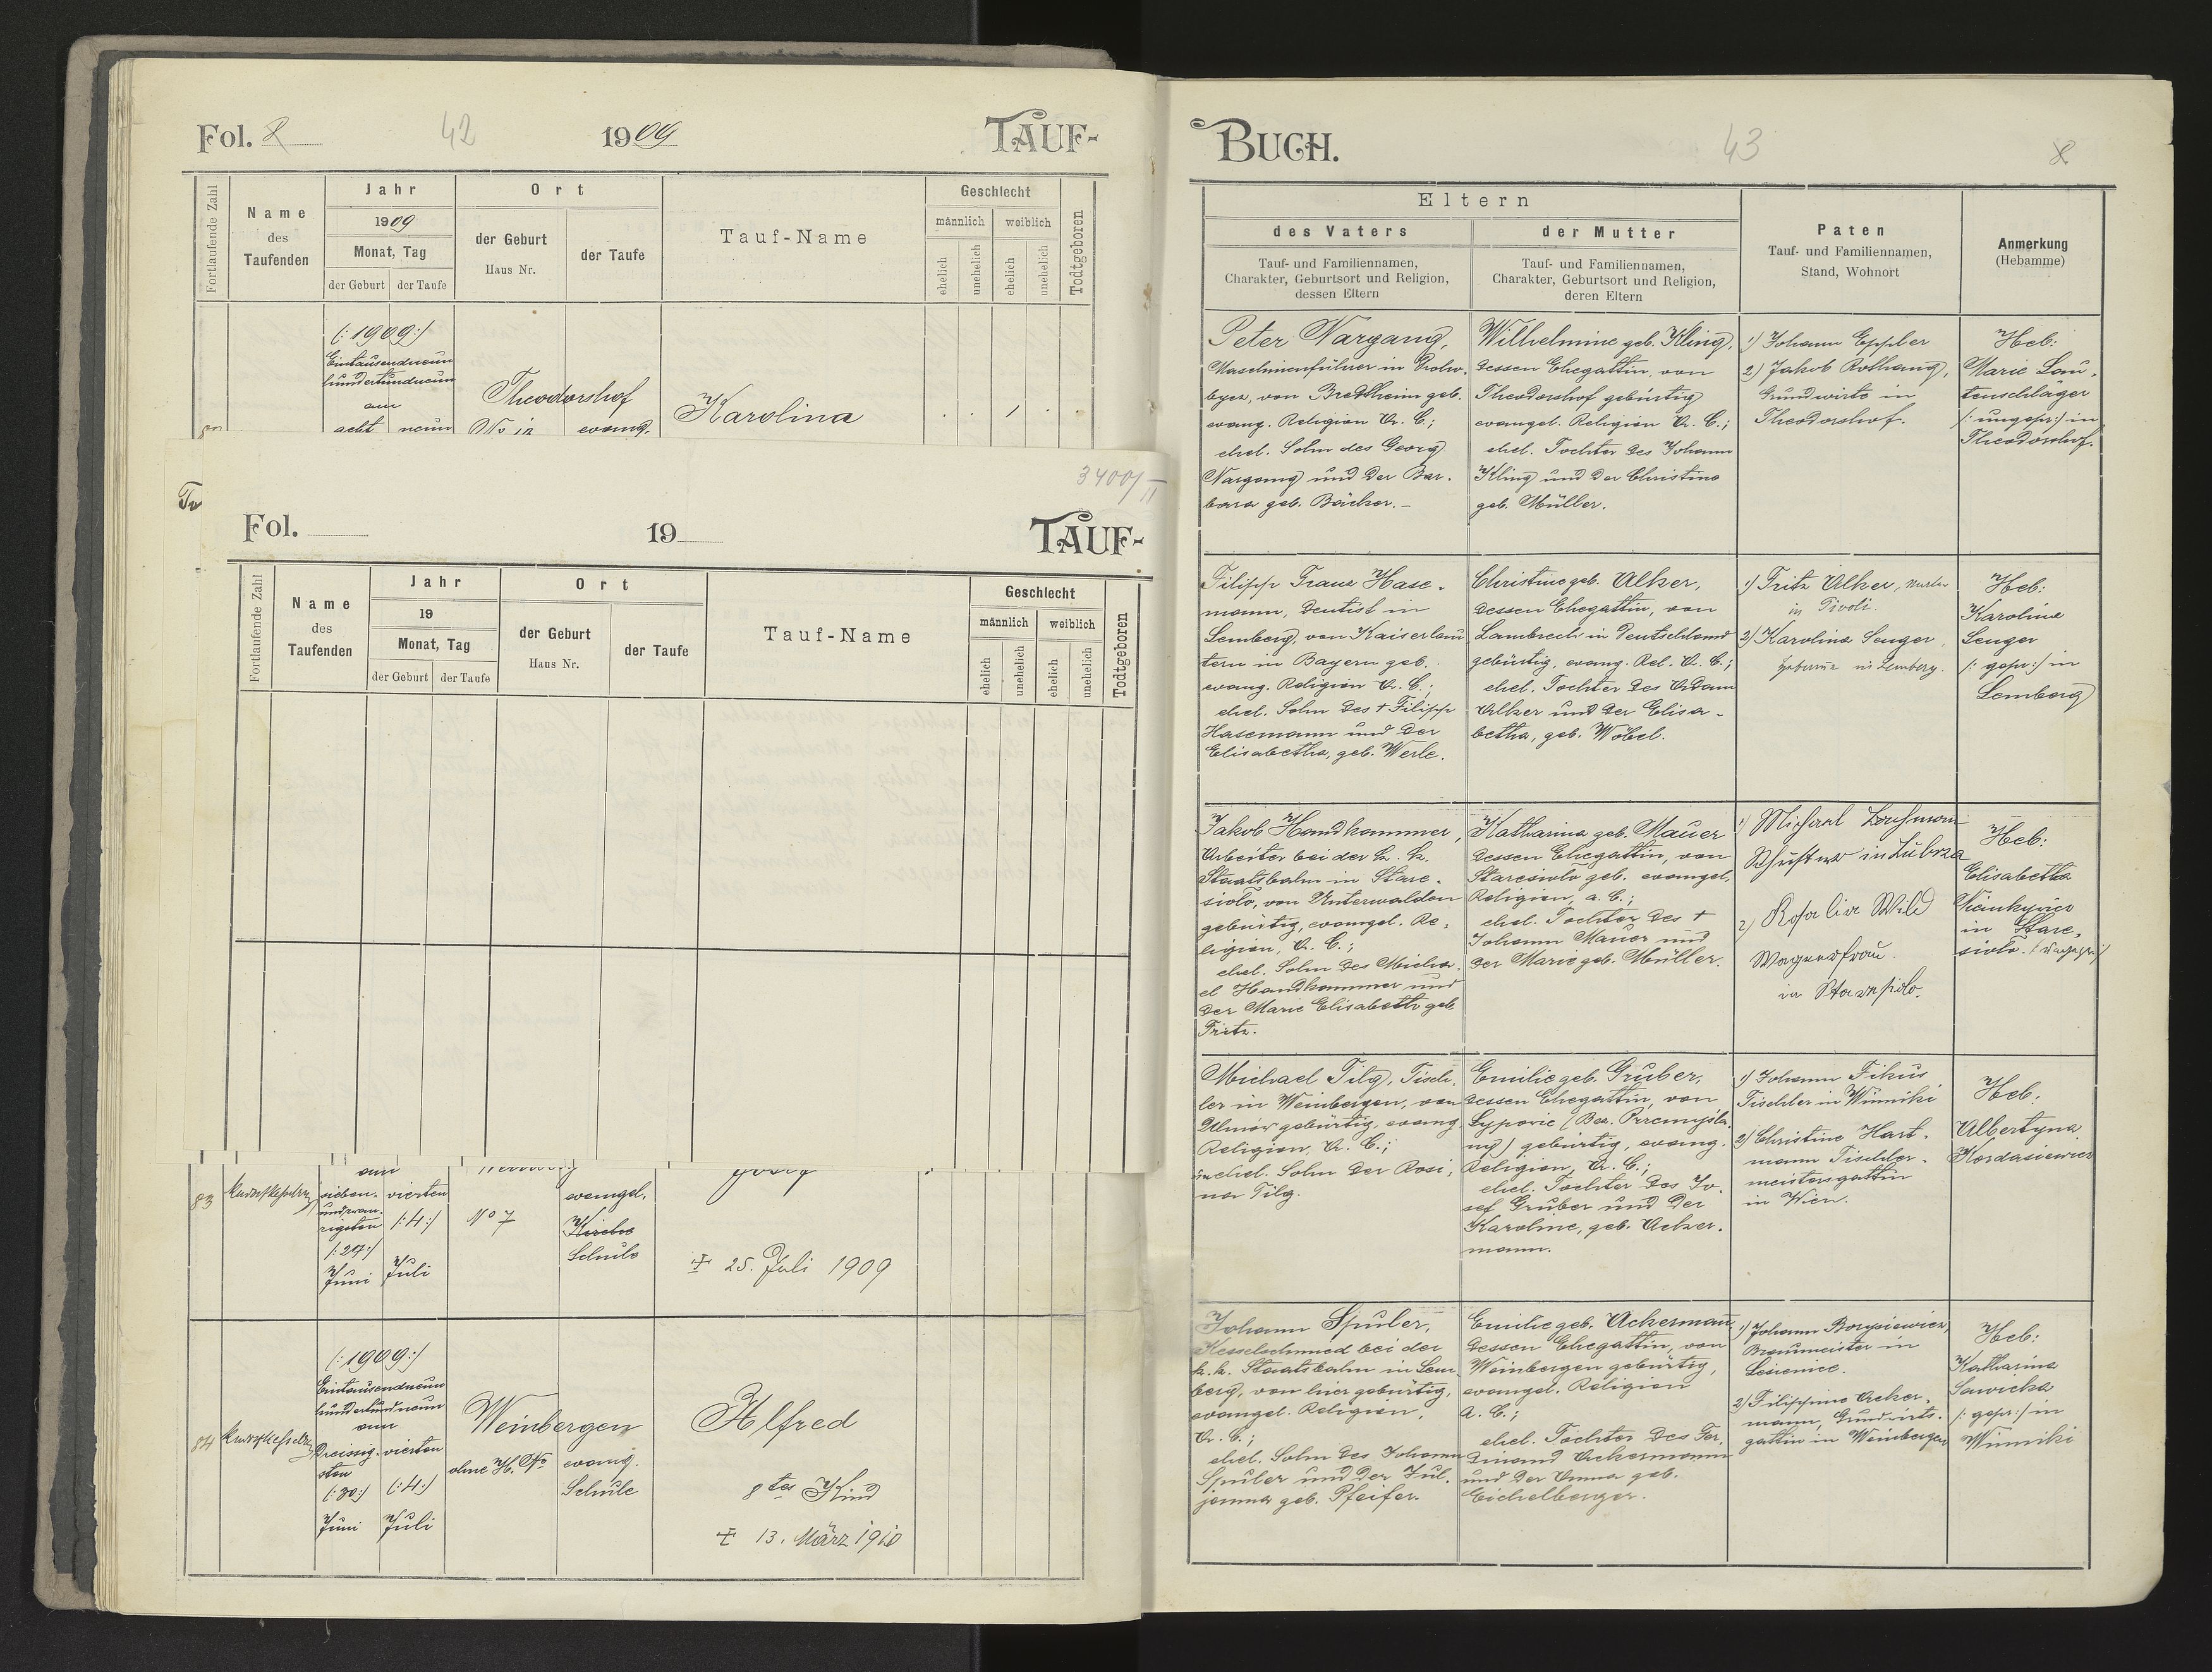 Fol. 8
42
1909
TAUF-
Fortlaufende Zahl
Name
des
Taufenden
Jahr
1909
Monat, Tag
der Geburt
der Taufe
Ort
der Geburt
Haus Nr.
der Taufe
Tauf-Name
Geschlecht
männlich
weiblich
ehelich
unehelich
ehelich
unehelich
Todtgeboren
(: 1909 :)
Eintausendneun
hundertundneun
am
acht
neun
Theodorshof
No 12
evang.
Karolina
3400/II
Fol.
19
TAUF-
Fortlaufende Zahl
Name
des
Taufenden
Jahr
19
Monat, Tag
der Geburt
der Taufe
Ort
der Geburt
Haus Nr.
der Taufe
Tauf-Name
Geschlecht
männlich
weiblich
ehelich
unehelich
ehelich
unehelich
Todtgeboren
83
am
sieben-
undzwan-
zigsten
(: 27 :)
Juni
vierten
(: 4 :)
Juli
No 7
evangel.
Kirche
Schule
Georg
+ 25. Juli 1909
84
(: 1909 :)
Eintausendneun
hundertundneun
am
Dreissig-
sten
(: 30 :)
Juni
vierten
(: 4 :)
Juli
Weinbergen
ohne H. No
evang.
Schule
Alfred
8tes Kind
+ 13. März 1910
BUCH.
43
8
Eltern
des Vaters
Tauf- und Familiennamen,
Charakter, Geburtsort und Religion,
dessen Eltern
der Mutter
Tauf- und Familiennamen,
Charakter, Geburtsort und Religion,
deren Eltern
Paten
Tauf- und Familiennamen,
Stand, Wohnort
Anmerkung
(Hebamme)
Peter Nargang,
Maschinenführer in Droho-
bycz, von Brotheim geb.
evang. Religion A. C.;
ehel. Sohn des Georg
Nargang und der Bar-
bara geb. Bäcker. -
Wilhelmine geb. Kling,
dessen Ehegattin, von
Theodorshof gebürtig
evangel. Religion A. C.;
ehel. Tochter des Johann
Kling und der Christine
geb. Müller.
1) Johann Eppler
2) Jakob Rothaug,
Grundwirte in
Theodorshof.
Heb:
Marie Lau-
tenschläger
(: ungepr :) in
Theodorshof.
Filipp Franz Hase-
mann, Dentist in
Lemberg, von Kaiserslau
tern in Bayern geb.
evang. Religion A. C.;
ehel. Sohn des + Filipp
Hasemann und der
Elisabetha, geb. Werle.
Christine geb. Alker,
dessen Ehegattin, von
Lambrecht in Deutschland
gebürtig, evang. Rel. A. C.;
ehel. Tochter des Adam
Alker und der Elisa-
betha, geb. Wöbel.
1) Fritz Alker,
in Tivoli.
2) Karolina Senger,
Hebamme in Lemberg.
Heb:
Karolina
Senger
(: gepr :) in
Lemberg
Jakob Handkammer,
Arbeiter bei der k. k.
Staatsbahn in Stare-
siolo, von Unterwalden
gebürtig, evangel. Re-
ligion, A. C.;
ehel. Sohn des Micha-
el Handkammer und
der Marie Elisabeth geb.
Fritz.
Katharina geb. Mauer
dessen Ehegattin, von
Staresiolo geb. evangel.
Religion, a. C.;
ehel. Tochter des +
Johann Mauer und
der Marie geb. Müller.
1) Michael
Schuster in
2) Rosalia Wild
Wagnersfrau
in Staresiolo.
Heb:
Elisabetha
in Stare-
siolo.
Michael Tilg, Tisch-
ler in Weinbergen, von
Ulmow gebürtig, evang.
Religion, A. C.;
unehel. Sohn der Rosi-
na Tilg.
Emilie geb. Gruber,
dessen Ehegattin, von
Lypowic (Bez. Przemysla-
ny) gebürtig, evang.
Religion, A. C.;
ehel. Tochter des Jo-
sef Gruber und der
Karoline, geb. Acker-
mann.
1) Johann Fikus
Tischler in Winniki
2) Christine Hart-
mann Tischler-
meistersgattin
in Wien.
Heb:
Albertyna
Kordasiewicz
Johann Spuler,
Kesselschmied bei der
k. k. Staatsbahn in Lem-
berg, von hier gebürtig,
evangel. Religion,
A. C.;
ehel. Sohn des Johann
Spuler und der Jul-
janna geb. Pfeifer.
Emilie geb. Ackermann
dessen Ehegattin, von
Weinbergen gebürtig,
evangel. Religion
A. C.;
ehel. Tochter des Fer-
dinand Ackermann
und der Anna geb.
Eichelberger.
1) Johann Borysiewicz,
Braumeister in
Lesienice.
2) Filippine Acker-
mann, Grundwirts-
gattin in Weinbergen
Heb:
Katharina
Sawicka
(: gepr :) in
Winniki